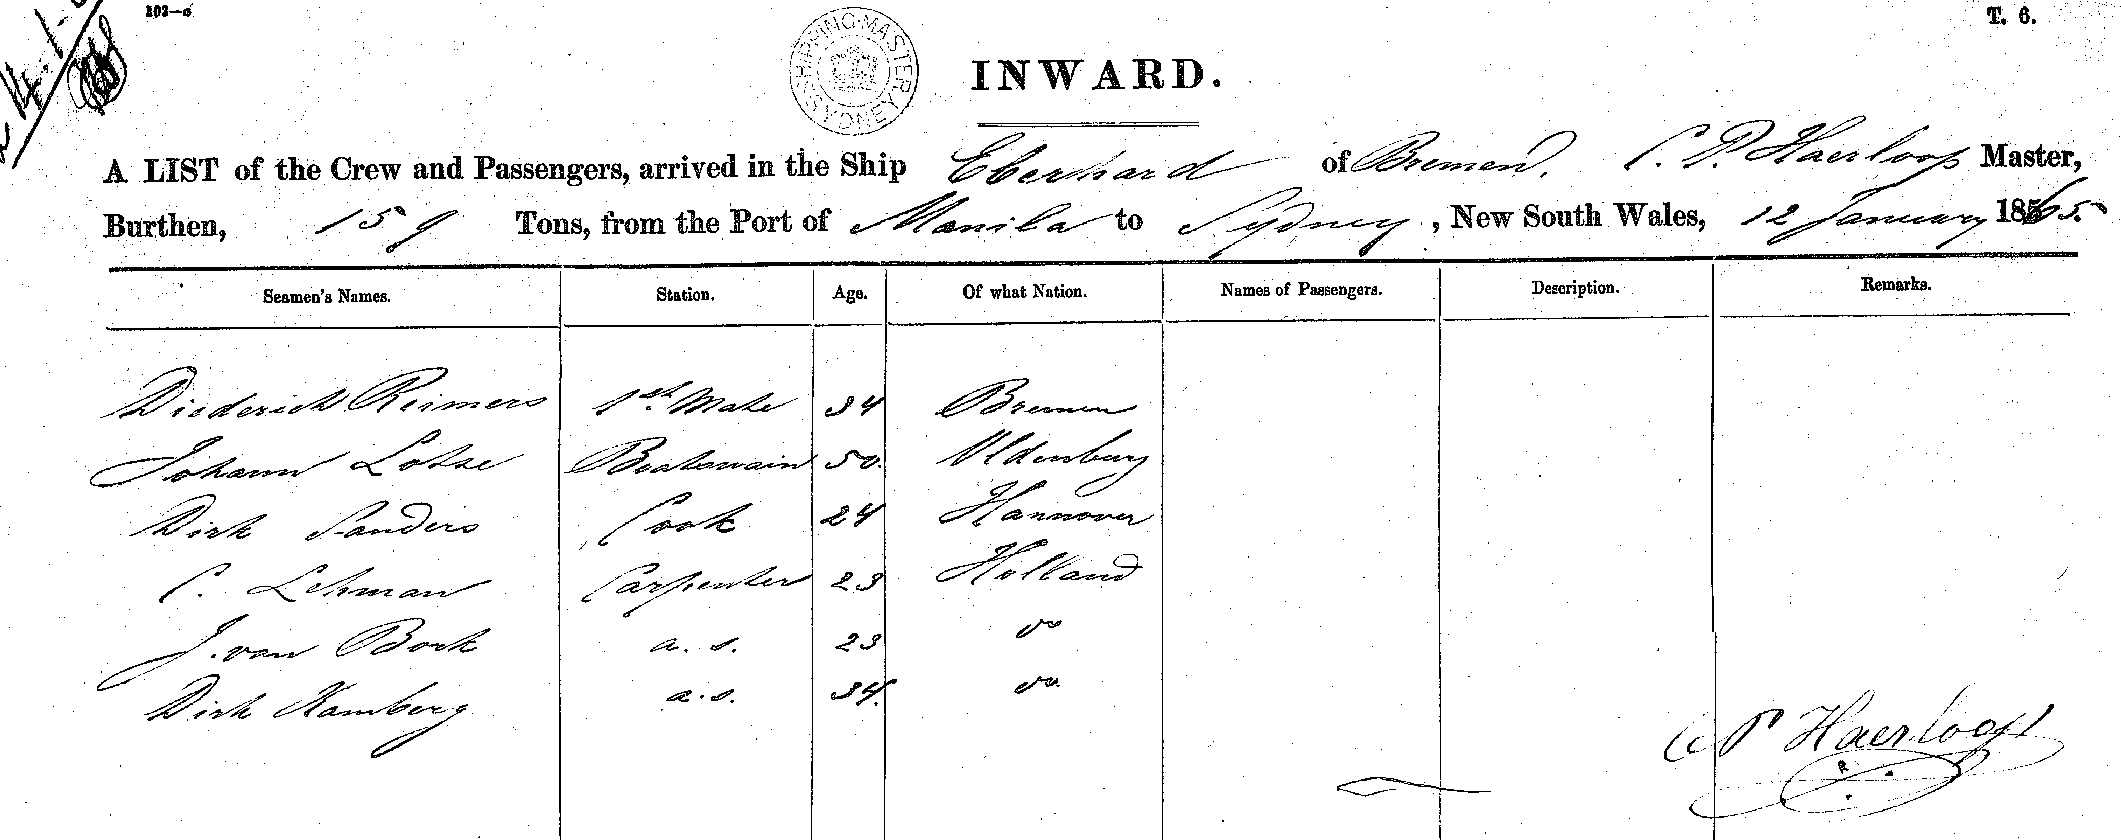 202—c
T. 6.
SHIPPING MASTER SYDNEY
INWARD.
A LIST of the Crew and Passengers, arrived in the Ship Eberhard of Bremen, C. P. Haerloop Master,
Burthen, 159 Tons, from the Port of Manila to Sydney, New South Wales, 12 January 1865.
Seamen's Names. Station. Age. Of what Nation. Names of Passengers. Description. Remarks.
Diederich Reimers 1st. Mate 34 Bremen
Johann Lotse Boatswain 50. Oldenburg
Dirk Sanders Cook 24 Hannover
C. Lehman Carpenter 23 Holland
J. van Bork a. s. 23 do
Dirk Kamberg a. s. 34. do
C P Haerloop